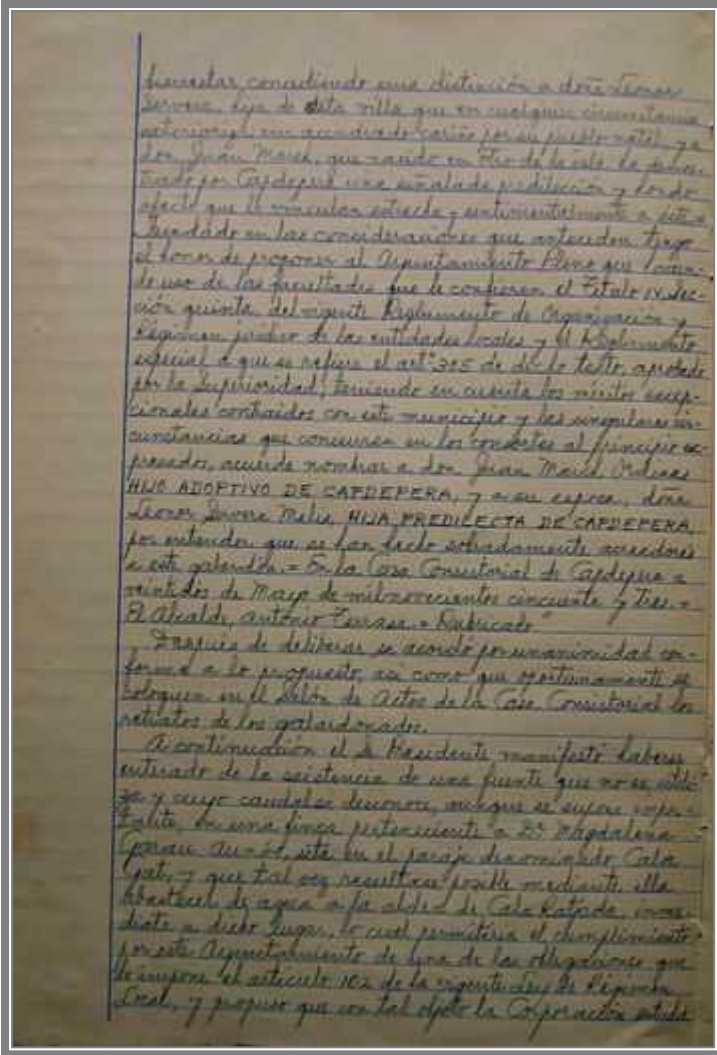 bienestar, concediendo una distinción a doña Leonor
Servera, hija de esta villa que en cualquier circunstancia
exterioriza un acendrado cariño por su pueblo natal, y a
don Juan March, que nacido en otro de la isla ha demos-
trado por Capdepera una señalada predilección y hondo
afecto que le vinculan estrecha y sentimentalmente a esta
Fundado en las consideraciones que anteceden, tengo
el honor de proponer al Ayuntamiento Pleno que hacien-
do uso de las facultades que le confieren el Título IV, Sec-
ción quinta, del vigente Reglamento de Organización y
Régimen jurídico de las entidades locales y el Reglamento
especial a que se refiere el artº 305 de dicho texto, aprobado
por la Superioridad, teniendo en cuenta los méritos excep-
cionales contraidos con este municipio y las singulares cir-
cunstancias que concurren en los consortes al principio ex-
presados, acuerde nombrar a don Juan March Ordinas
HIJO ADOPTIVO DE CAPDEPERA, y a su esposa, doña
Leonor Servera Melis, HIJA PREDILECTA DE CAPDEPERA,
por entender que se han hecho sobradamente acreedores
a este galardón. = En la Casa Consistorial de Capdepera a
veintidos de Mayo de mil novecientos cincuenta y tres. =
El Alcalde, Antonio Terrasa. = Rubricado"
Después de deliberar se acordó por unanimidad con-
forme a lo propuesto, así como que oportunamente se
coloquen en el Salón de Actos de la Casa Consistorial los
retratos de los galardonados.
A continuación el Sr. Presidente manifestó haberse
enterado de la existencia de una fuente que no se utili-
za y cuyo caudal se desconoce, aunque se supone impor-
tante, en una finca perteneciente a Dª Magdalena
Garau, sita en el paraje denominado Cala
Gat, y que tal vez resultase posible mediante ella
abastecer de agua a la aldea de Cala Ratjada, inme-
diata a dicho lugar, lo cual permitiría el cumplimiento
por este Ayuntamiento de una de las obligaciones que
le impone el artículo 102 de la vigente Ley de Régimen
Local, y propuso que con tal objeto la Corporación